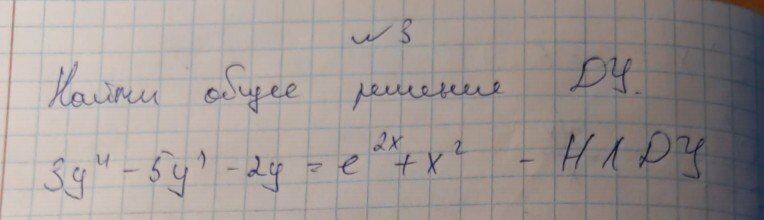 № 3
Найти общее решение ДУ.
3y'' - 5y' - 2y = e^{2x} + x^2 - НЛДУ